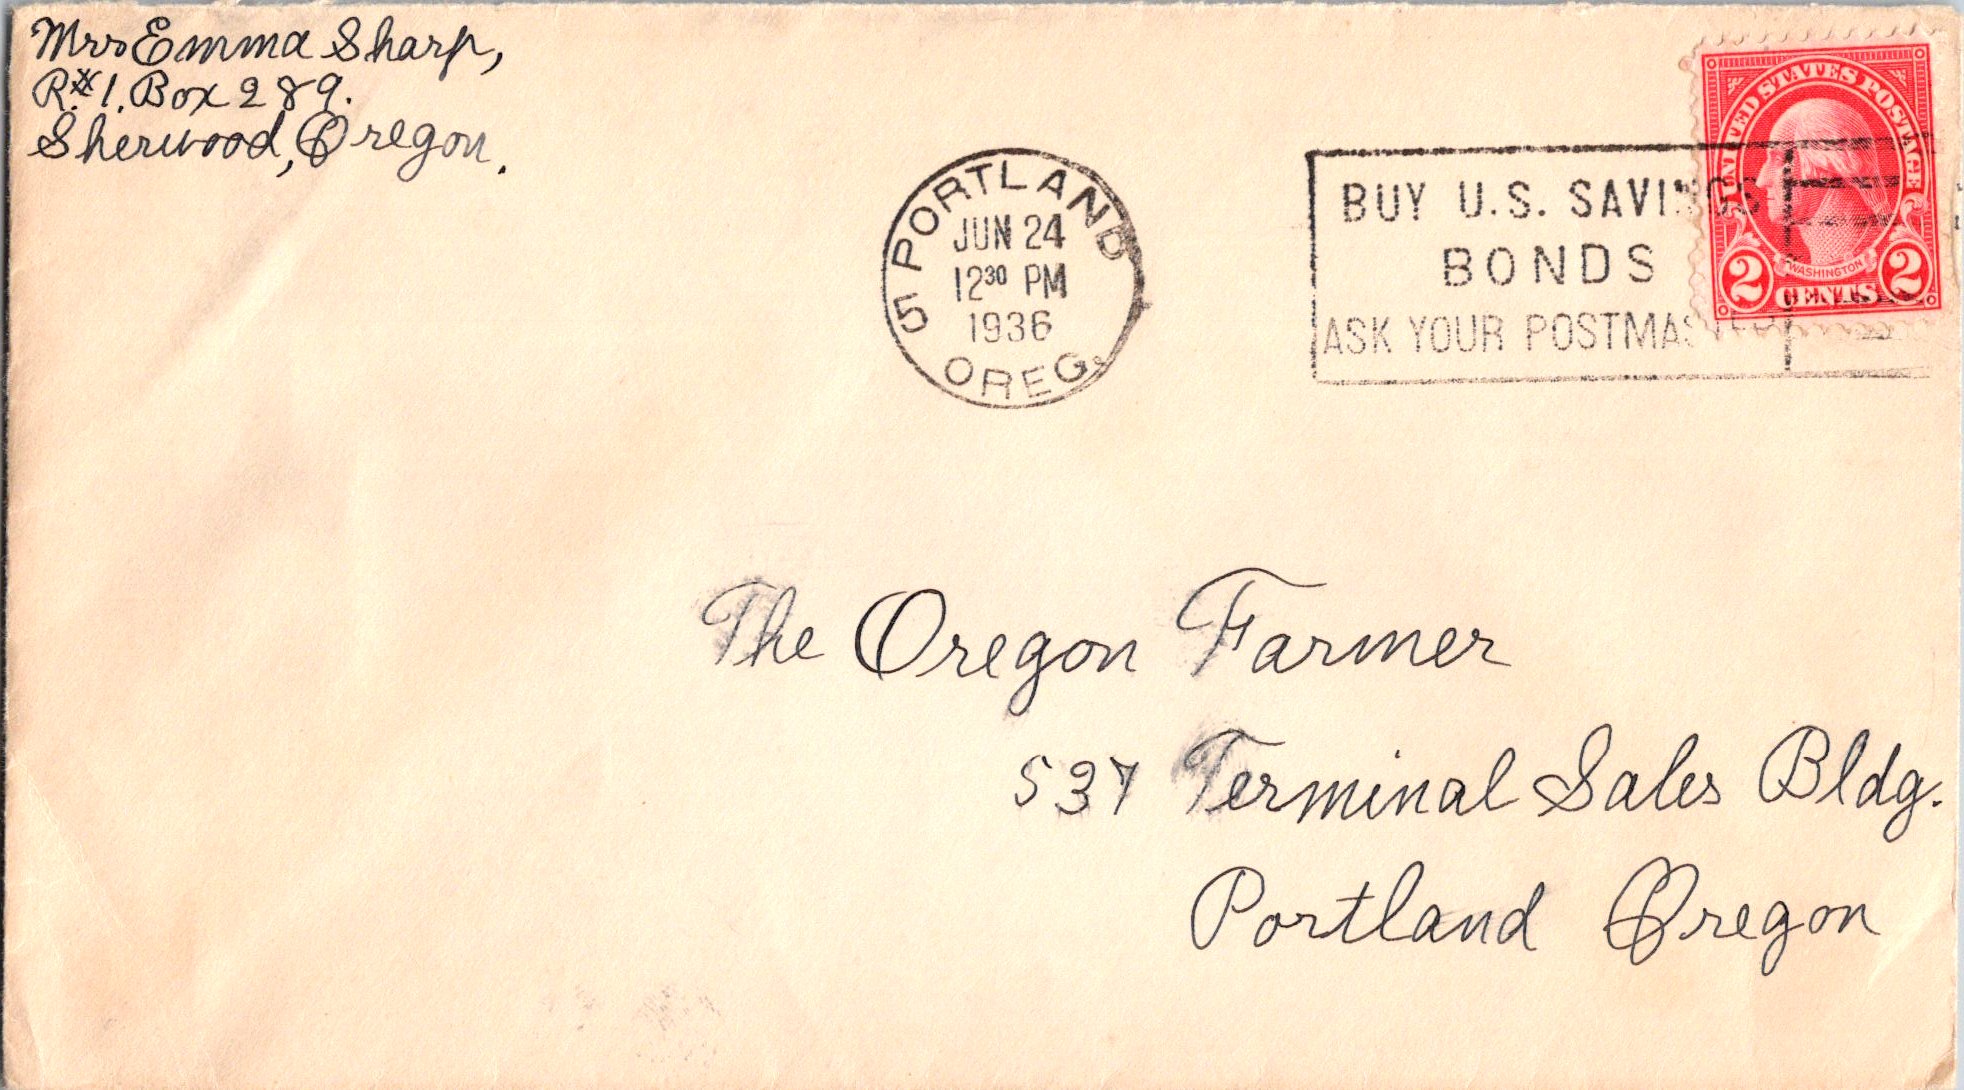 Mrs Emma Sharp,
R.#1. Box 289.
Sherwood, Oregon.
5 PORTLAND
JUN 24
12 30 PM
1936
OREG.
BUY U.S. SAVINGS
BONDS
ASK YOUR POSTMASTER
UNITED STATES POSTAGE
WASHINGTON
2 CENTS 2
The Oregon Farmer
537 Terminal Sales Bldg.
Portland Oregon